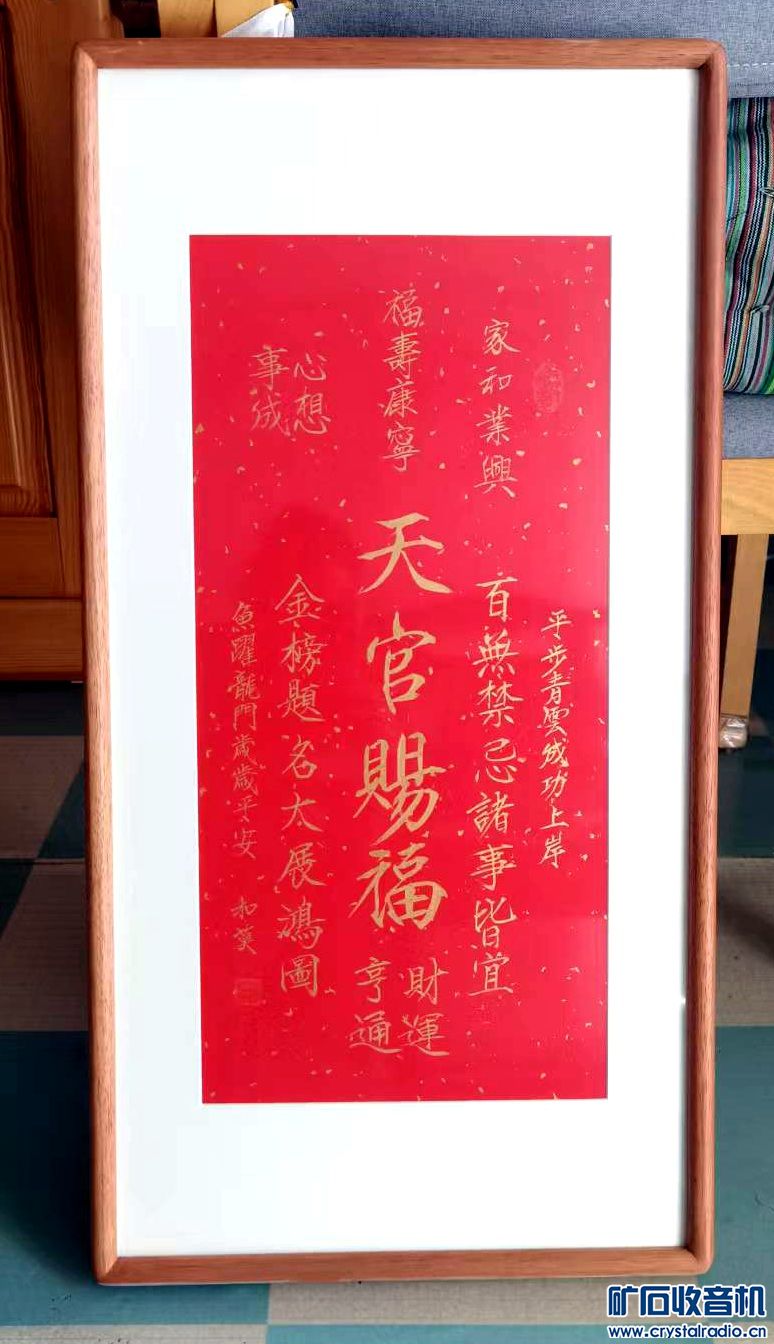 平步青雲成功上岸
家和業興
百無禁忌諸事皆宜
福壽康寧
天官賜福
財運
亨通
心想
事成
金榜題名大展鴻圖
魚躍龍門歲歲平安
和羹
矿石收音机
www.crystalradio.cn